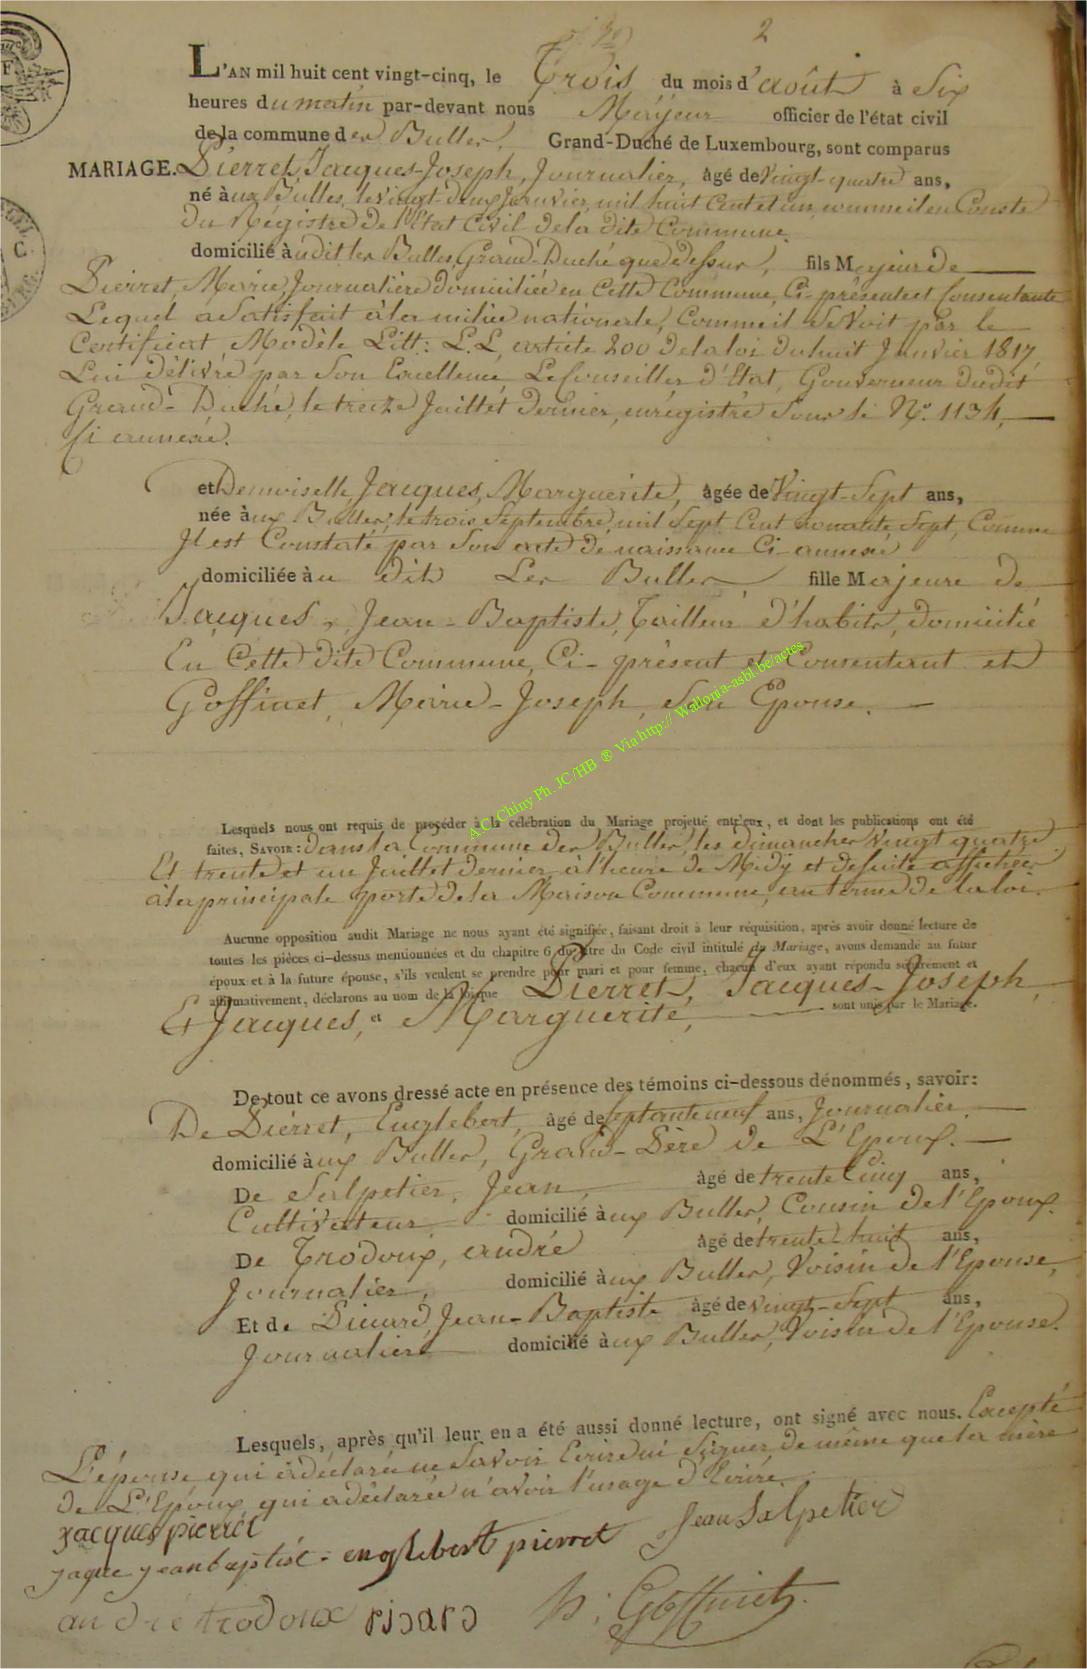 2
L'AN mil huit cent vingt-cinq, le Trois du mois d'août à Six
heures du matin par-devant nous Mayeur officier de l'état civil
de la commune des Bulles, Grand-Duché de Luxembourg, sont comparus
MARIAGE. Pierret, Jacques-Joseph, Journalier, âgé de Vingt-quatre ans,
né aux Bulles, le vingt-deux Janvier mil huit Cent et un, comme il en Conste
du Régistre de l'Etat Civil de la dite Commune.
domicilié audit les Bulles, Grand-Duché que dessus, fils Majeur de
Pierret, Marie, Journalière domiciliée en Cette Commune, Ci-présente et Consentante
Lequel a Satisfait à la milice nationale, Comme il se Voit par le
Certificat, Modèle Litt: L.L, article 200 de la loi du huit Janvier 1817,
Lui délivré par Son Excellence Le Conseiller d'Etat, Gouverneur dudit
Grand-Duché, le treize Juillet dernier, enrégistré Sous le N°. 1134,
Ci annexé.
et Demoiselle, Jacques, Marguerite, âgée de Vingt-Sept ans,
née aux Bulles, le trois Septembre mil Sept Cent nonante Sept, Comme
Il est Constaté par Son acte de naissance Ci-annexé
domiciliée au dit Les Bulles, fille Majeure de
Jacques, Jean-Baptiste, Tailleur d'habits, domicilié
En Cette dite Commune, Ci-présent et Consentant et
Goffinet, Marie-Joseph, son Epouse.
A.C. Chiny Ph. JC/HB ® Via http://Wallonia-asbl.be/actes
Lesquels nous ont requis de procéder à la célébration du Mariage projetté entr'eux, et dont les publications ont été
faites, SAVOIR: dans la Commune des Bulles, les dimanches Vingt quatre
Et trente et un Juillet dernier, à l'heure de Midy et de suite affichées
à la principale porte de la Maison Commune, au terme de la loi.
Aucune opposition audit Mariage ne nous ayant été signifiée, faisant droit à leur réquisition, après avoir donné lecture de
toutes les pièces ci-dessus mentionnées et du chapitre 6 du titre du Code civil intitulé du Mariage, avons demandé au futur
époux et à la future épouse, s'ils veulent se prendre pour mari et pour femme, chacun d'eux ayant répondu séparément et
affirmativement, déclarons au nom de la loi que Pierret, Jacques-Joseph,
Et Jacques, et Marguerite, sont unis par le Mariage.
De tout ce avons dressé acte en présence des témoins ci-dessous dénommés, savoir:
De Pierret, Englebert, âgé de Septante neuf ans, Journalier.
domicilié aux Bulles, Grand-Père de L'Epoux.
De Salpetier, Jean, âgé de trente Cinq ans,
Cultivateur domicilié aux Bulles, Cousin de l'Epoux.
De Trodoux, andré âgé de trente huit ans,
Journalier, domicilié aux Bulles, Voisin de l'Epouse,
Et de Pisard, Jean-Baptiste âgé de vingt-Sept ans,
Journalier domicilié aux Bulles, Voisin de l'Epouse.
Lesquels, après qu'il leur en a été aussi donné lecture, ont signé avec nous. Excepté
L'épouse qui a déclaré ne Savoir Ecrire ni Signer de même que la mère
de L'Epoux, qui a déclaré n'avoir l'usage d'Ecrire.
jacques pierret
jaque jean baptist. englebert pierret Jean Salpetier
andrié trodoux pisard h: Goffinet.